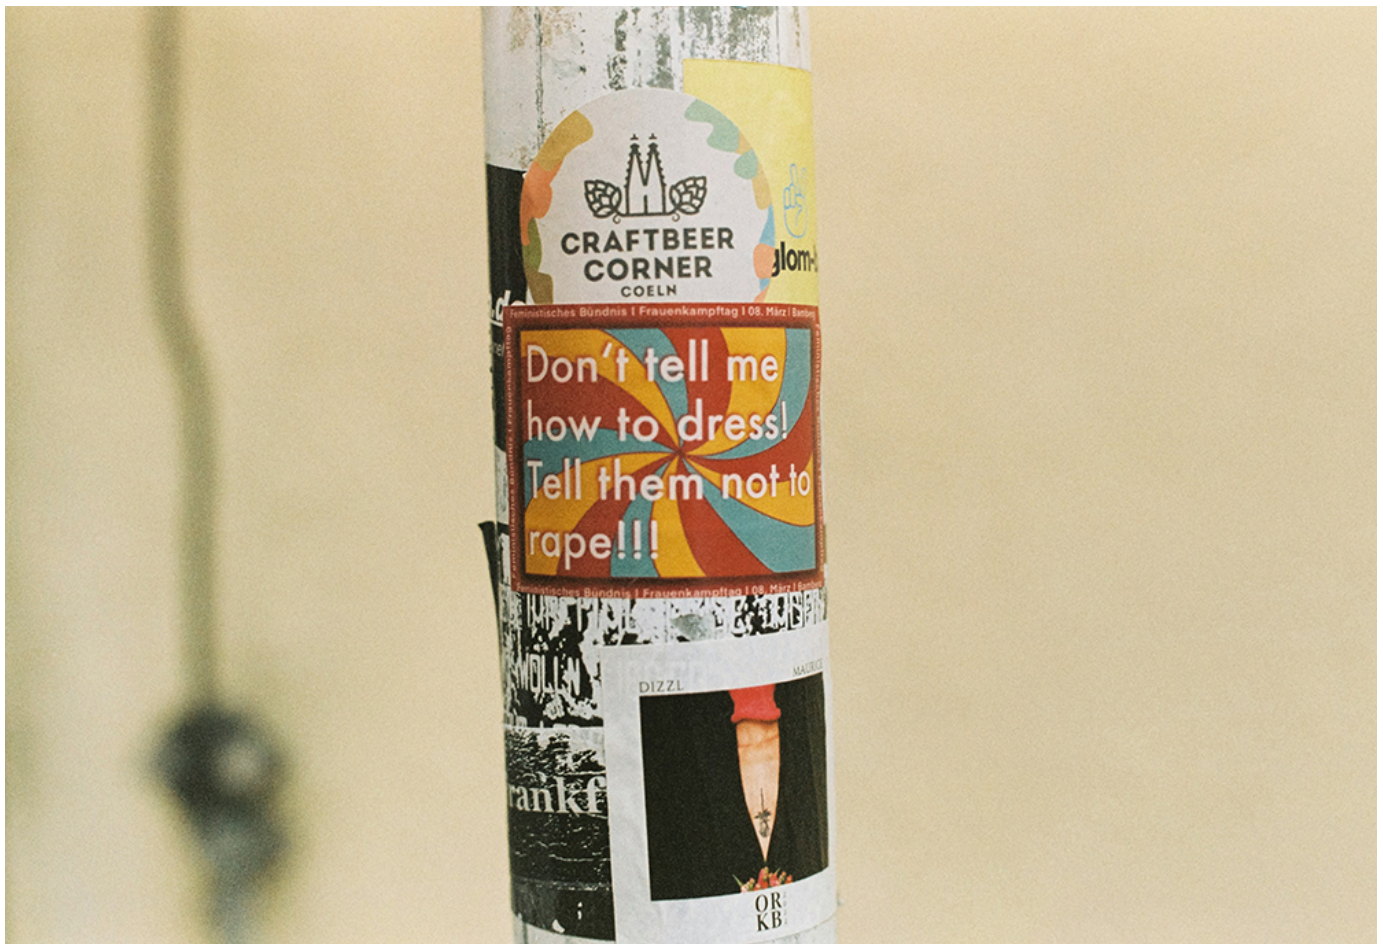 CRAFTBEER
CORNER
COELN
glom-
Feministisches Bündnis I Frauenkampftag I 08. März I Bamberg
Don't tell me
how to dress!
Tell them not to
rape!!!
Feministisches Bündnis I Frauenkampftag I 08. März I Bamberg
MÖLLN
DIZZL
MAURICE
rankf
OR
KB